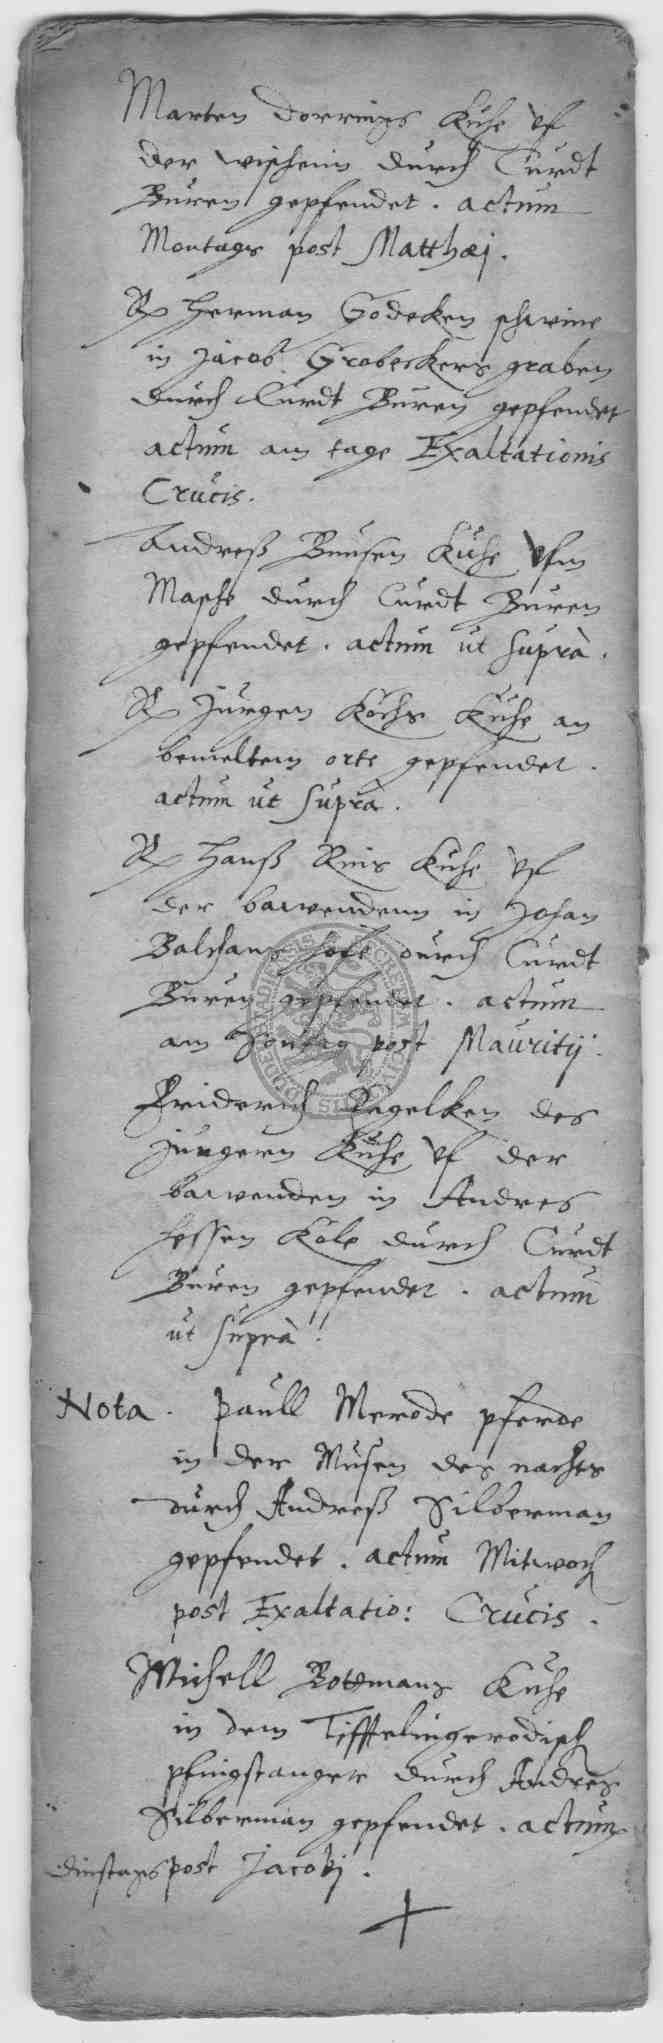 Marten Dorrings Kuhe vf
der wischenn durch Curdt
Buren gepfendet. actum
Montags post Matthæj.
Herman Godeken schwine
in Jacob Grobeckers graben
durch Curdt Buren gepfendet
actum am tage Exaltationis
Crucis.
Andreß Bunsen Kuhe vfm
Masche durch Curdt Buren
gepfendet. actum ut suprà.
Jurgen Kochs Kuhe an
bemeltem orte gepfendet.
actum ut suprà.
Hanß Kuhe vf
der barwendenn in Johan
Balchans hofe durch Curdt
Buren gepfendet. actum
am Sontag post Mauritij.
Friderich Degelken des
jungern Kuhe vf der
barwenden in Andres
Hessen Kole durch Curdt
Buren gepfendet. actum
ut suprà!
Nota. Paull Merode pferde
in der Musen des nachts
durch Andreß Silberman
gepfendet. actum Mitwoch
post Exaltatio: Crucis.
Michell Bottmans Kuhe
in dem Tifftelingerodisch
pfingstangere durch Andres
Silberman gepfendet. actum
dinstags post Jacobj.